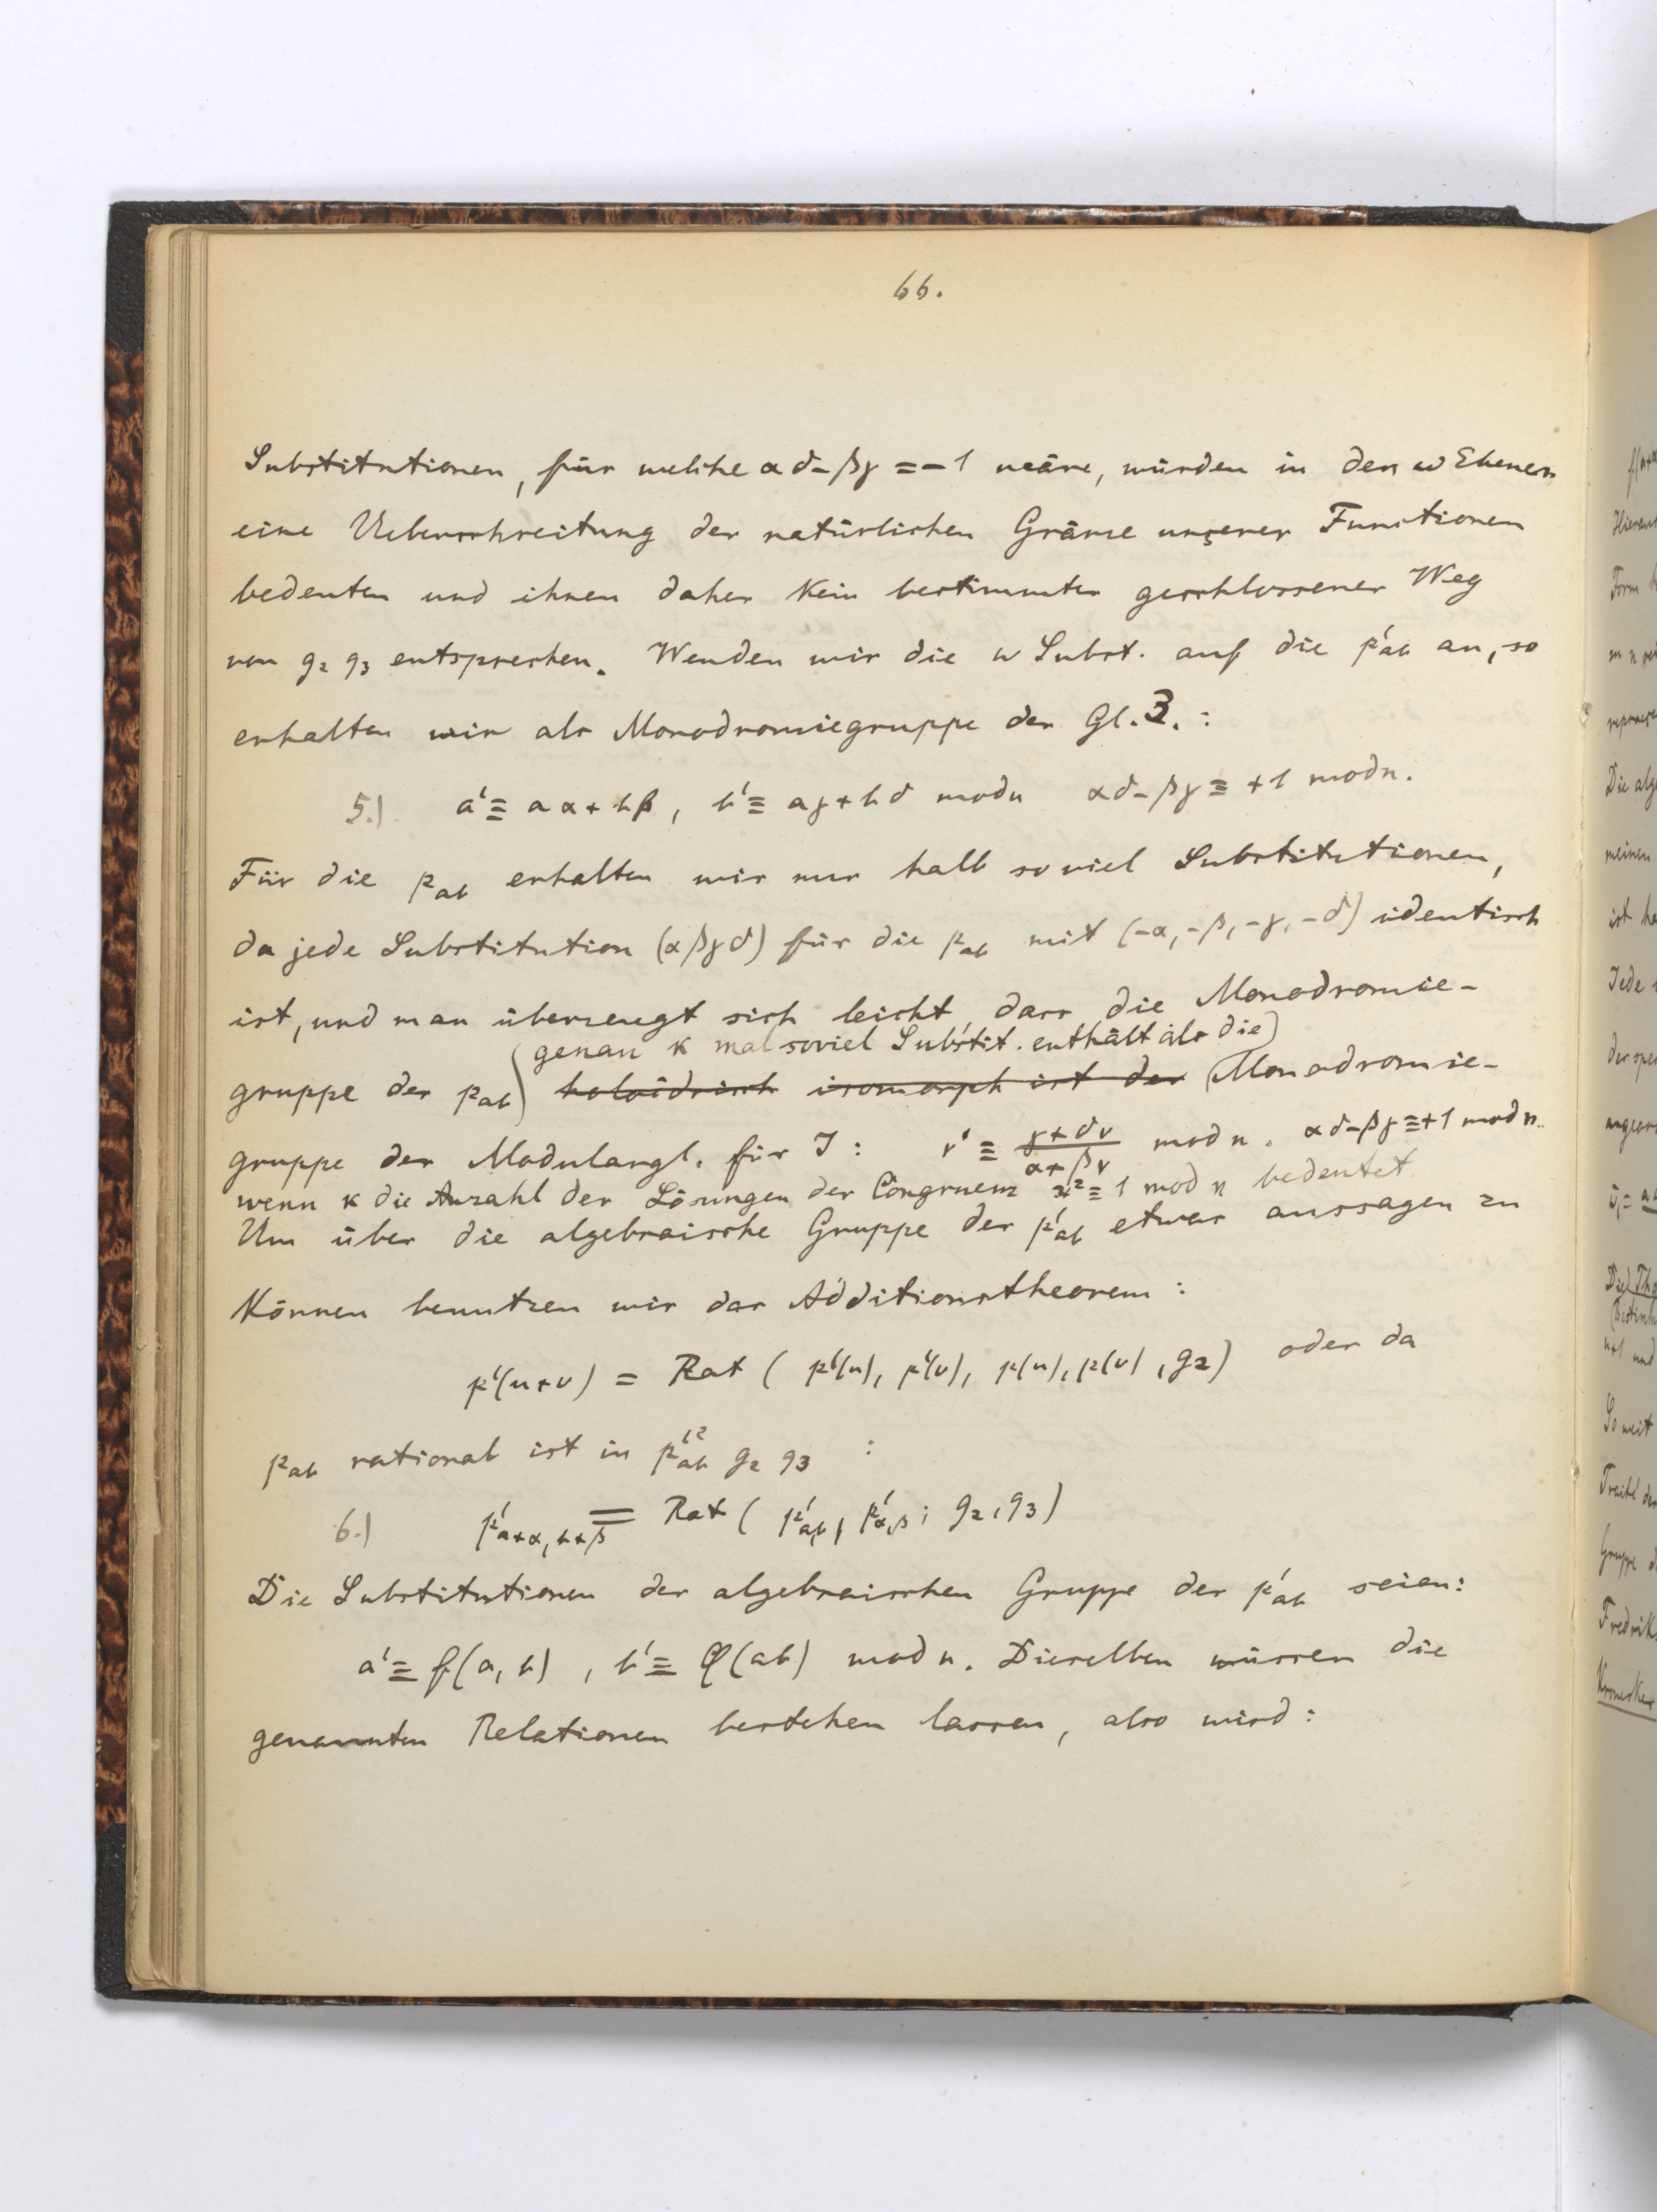 66.
Substitutionen, für welche αδ-βγ = -1 wäre, würden in den ω Ebenen
eine Ueberschreitung der natürlichen Gränze unserer Functionen
bedeuten und ihnen daher kein bestimmter geschlossener Weg
von g₂ g₃ entsprechen. Wenden wir die ω Subst. auf die p'ab an, so
erhalten wir als Monodromiegruppe der Gl. 3. :
5.) a' ≡ aα + bβ, b' ≡ aγ + bδ mod n αδ-βγ ≡ +1 mod n.
Für die pab erhalten wir nur halb so viel Substitutionen,
da jede Substitution (αβγδ) für die pab mit (-α, -β, -γ, -δ) identisch
ist, und man überzeugt sich leicht dass die Monodromie-
genau κ mal soviel Substit. enthält als die
gruppe der pab holoëdrisch isomorph ist der Monodromie-
gruppe der Modulargl. für J : ν' ≡ (γ+δν)/(α+βν) mod n. αδ-βγ ≡ +1 mod n.
wenn κ die Anzahl der Lösungen der Congruenz x² ≡ 1 mod n bedeutet
Um über die algebraische Gruppe der p'ab etwas aussagen zu
können benutzen wir das Additionstheorem :
p'(u+v) = Rat ( p'(u), p'(v), p(u), p(v), g₂) oder da
pab rational ist in p'²ab g₂ g₃ :
6.) p'a+α, b+β = Rat ( p'a,b, p'α,β ; g₂, g₃)
Die Substitutionen der algebraischen Gruppe der p'ab seien:
a' ≡ f(a, b) , b' ≡ φ(ab) mod n. Dieselben müssen die
genannten Relationen bestehen lassen, also wird :
Hieraus
Form
Die alg
meinen
ist
Jede
So weit
Traité
Gruppe
Kronecker